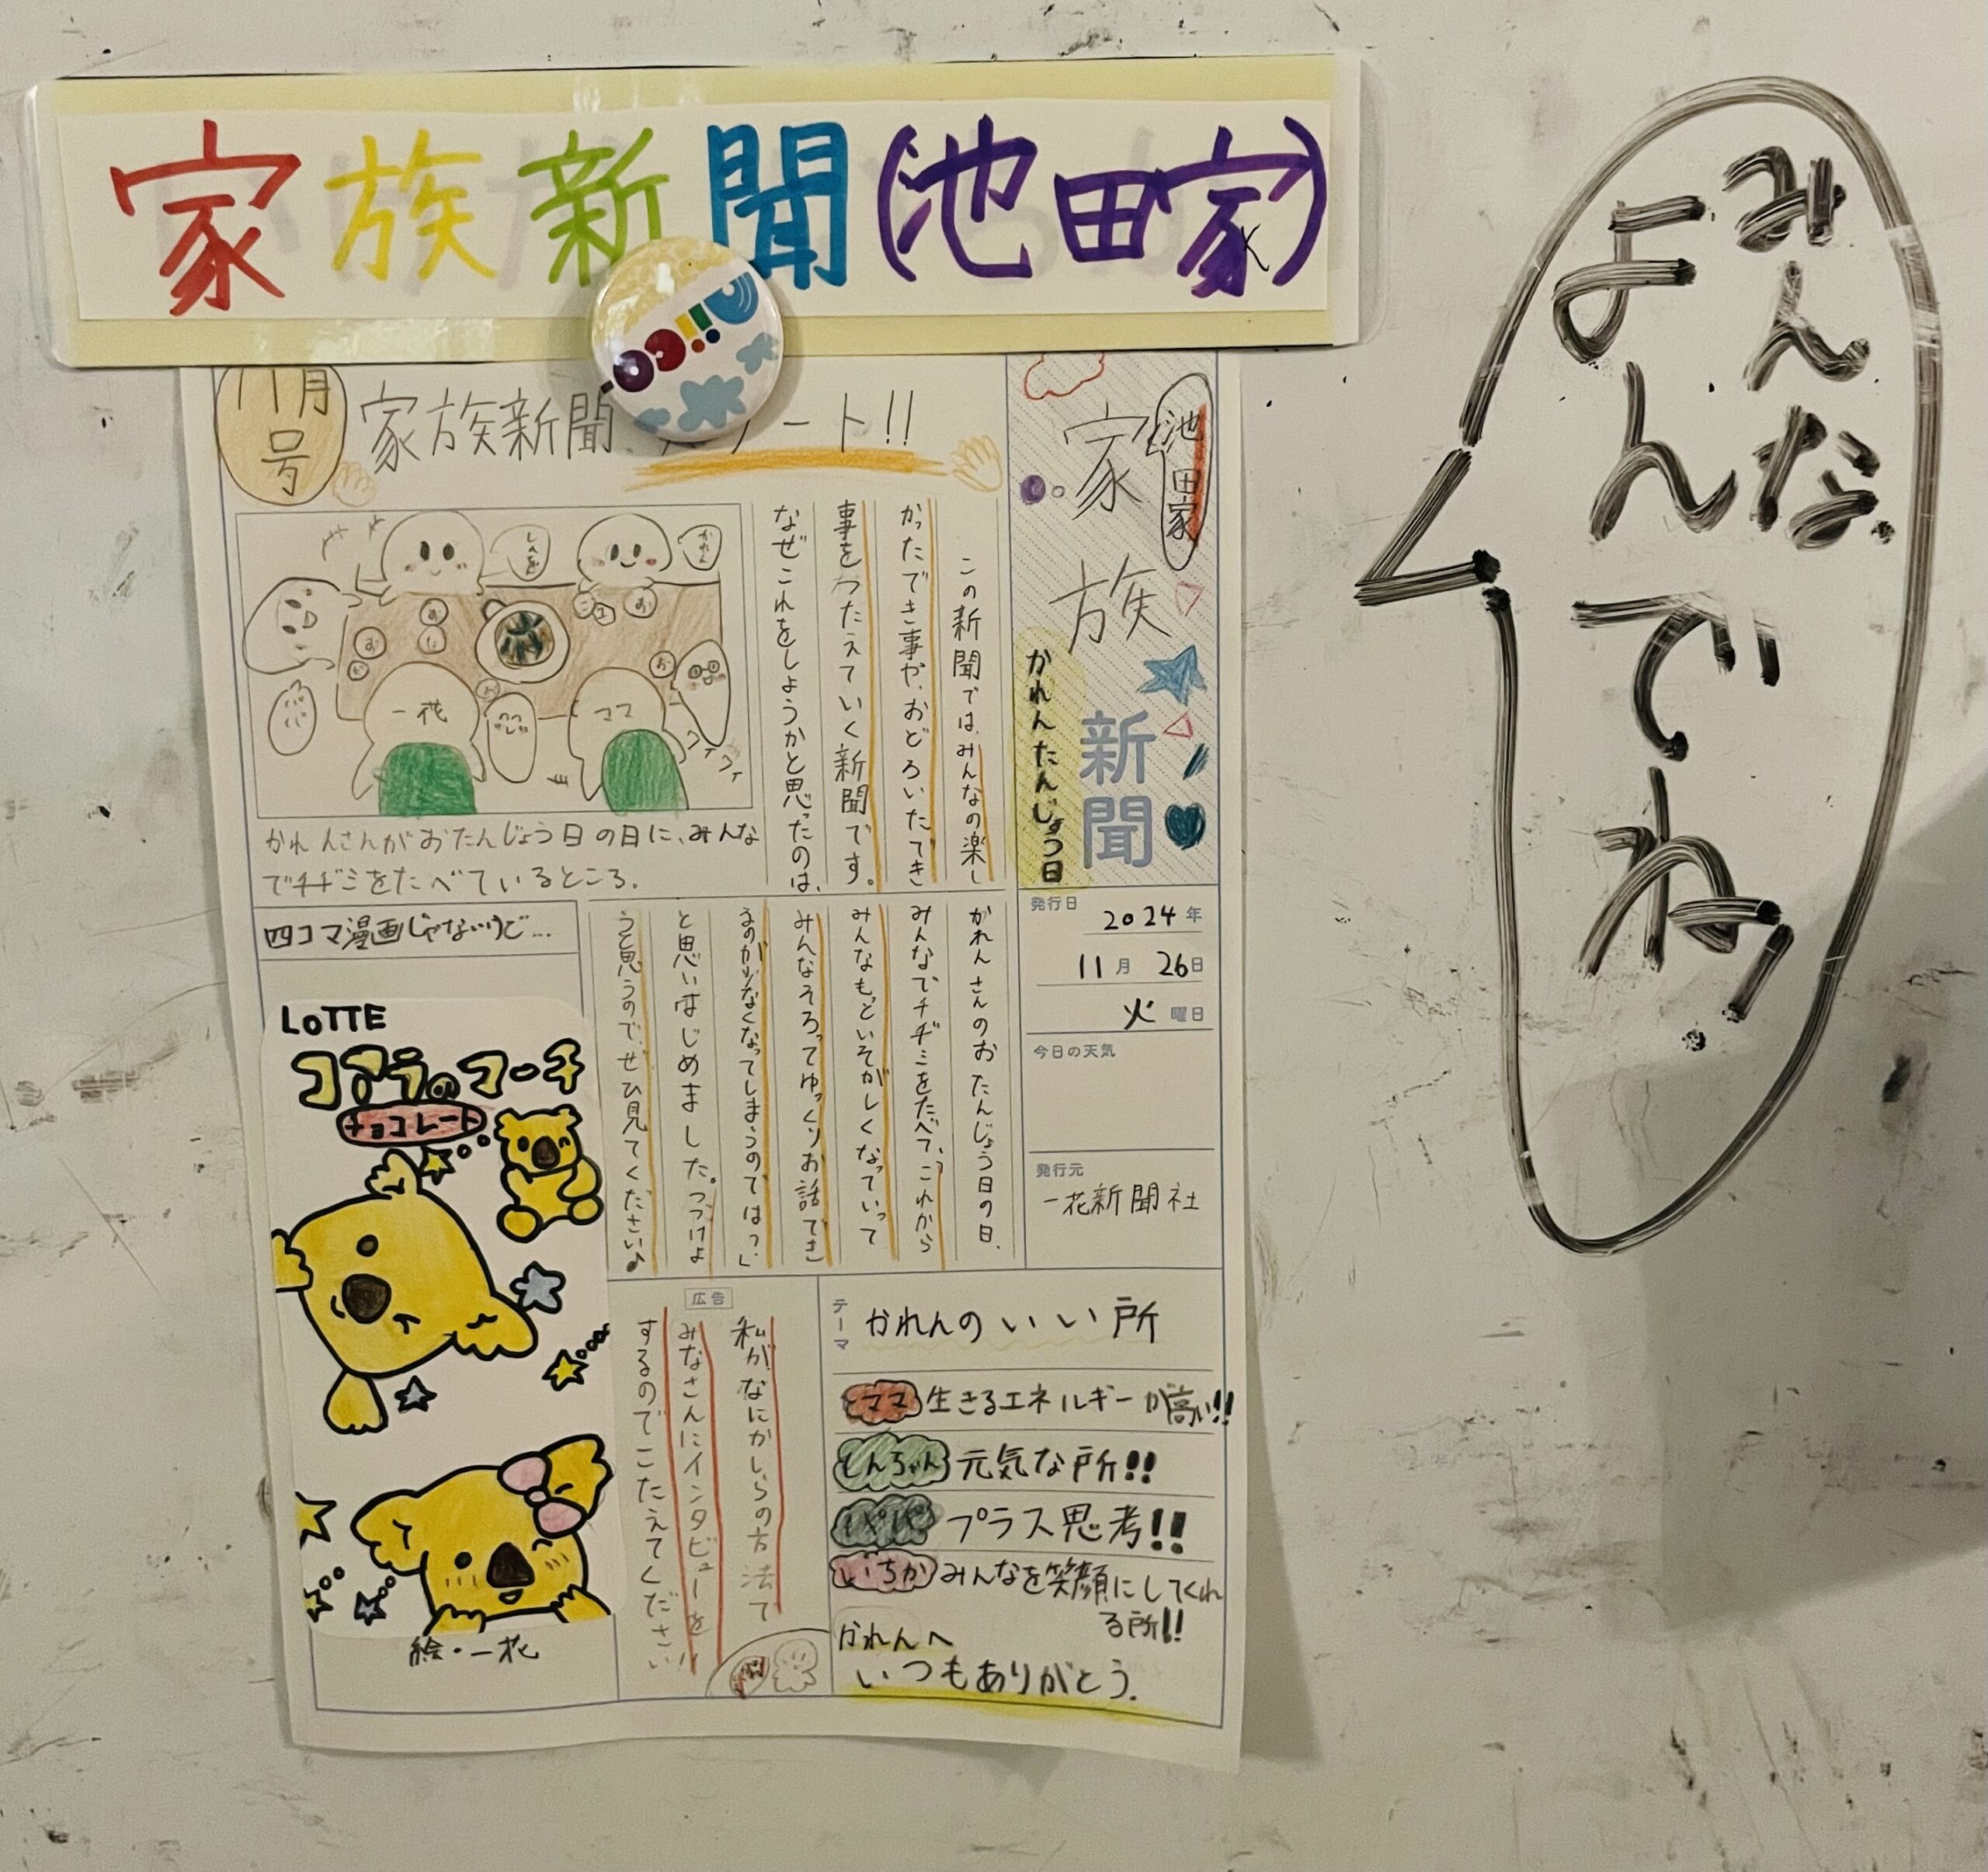 家族新聞(池田家)
みんな
よんでね!
11月
号
家族新聞 スタート!!
池田家
家族
新聞
かれんたんじょう日
この新聞では、みんなの楽し
かったでき事や、おどろいたでき
事をつたえていく新聞です。
なぜこれをしようかと思ったのは、
かれん
一花
ママ
かれんさんがおたんじょう日の日に、みんな
でチヂミをたべているところ。
発行日
2024年
11月 26日
火曜日
今日の天気
発行元
一花新聞社
かれんさんのおたんじょう日の日、
みんなでチヂミをたべて、「これから
みんなもといそがしくなっていって
みんなそろってゆっくりお話でき
るのがなくなってしまうのでは?」
と思いはじめました。つづけよ
うと思うので、ぜひ見てください♪
四コマ漫画じゃないけど…
LOTTE
コアラのマーチ
チョコレート
絵・一花
広告
私が、なにかしらの方法で
みなさんにインタビューを
するのでこたえてください!!
テーマ
かれんのいい所
ママ 生きるエネルギーが高い!!
とんちゃん 元気な所!!
パパ プラス思考!!
いちか みんなを笑顔にしてくれ
る所!!
かれんへ
いつもありがとう.